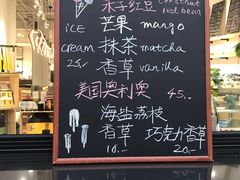 栗子红豆 chestnut
red bean
ice 芒果 mango
cream 抹茶 matcha
25.- 香草 vanilla
美国奥利奥 45.-
海盐荔枝
香草 巧克力香草
10.- 20.-